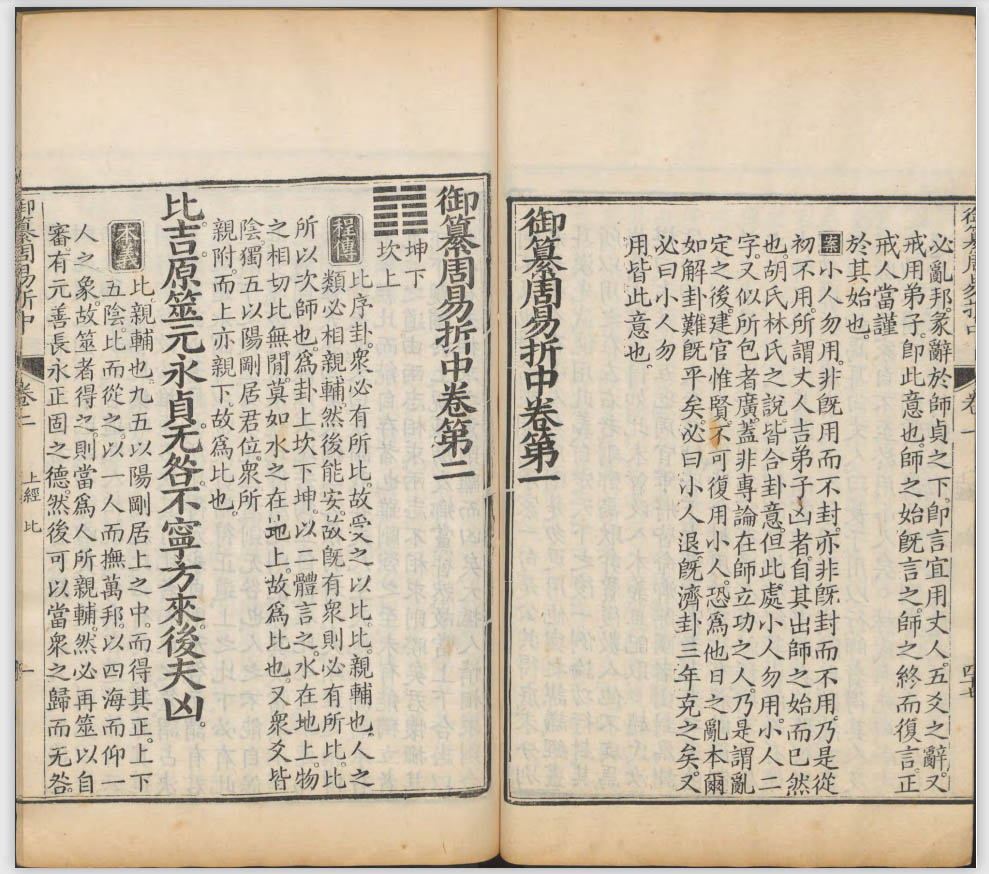 必亂邦。彖辭於師貞之下。卽言宜用丈人。五爻之辭。又
戒用弟子。卽此意也。師之始旣言之。師之終而復言。正
戒人當謹
於其始也。
案 小人勿用。非旣用而不封。亦非旣封而不用。乃是從
初不用。所謂丈人吉弟子凶者。自其出師之始而已然
也。胡氏林氏之說。皆合卦意。但此處小人勿用。小人二
字。又似所包者廣。蓋非專論在師立功之人。乃是謂亂
定之後。建官惟賢。不可復用小人。恐爲他日之亂本爾
如解卦難旣平矣。必曰小人退。旣濟卦三年克之矣。又
必曰小人勿
用。皆此意也。
御纂周易折中卷第一
御纂周易折中
卷一
御纂周易折中卷第二
坤下
坎上
程傳 比序卦。衆必有所比。故受之以比。比。親輔也。人之
類必相親輔。然後能安。故旣有衆則必有所比。比
所以次師也。爲卦上坎下坤。以二體言之。水在地上。物
之相切比無閒。莫如水之在地上。故爲比也。又衆爻皆
陰。獨五以陽剛居君位。衆所
親附。而上亦親下。故爲比也。
比吉原筮元永貞无咎不寧方來後夫凶。
本義 比。親輔也。九五以陽剛居上之中。而得其正。上下
五陰。比而從之。以一人而撫萬邦。以四海而仰一
人之象。故筮者得之。則當爲人所親輔。然必再筮以自
審。有元善長永正固之德。然後可以當衆之歸而无咎。
御纂周易折中
卷二
上經 比
一